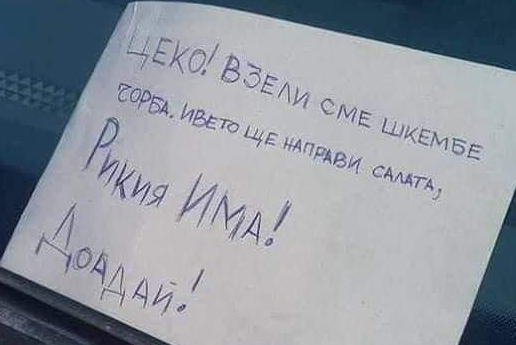 ЦЕКО! ВЗЕЛИ СМЕ ШКЕМБЕ
ЧОРБА. ИВЕТО ЩЕ НАПРАВИ САЛАТА,
РИКИЯ ИМА!
ДОАДАЙ!